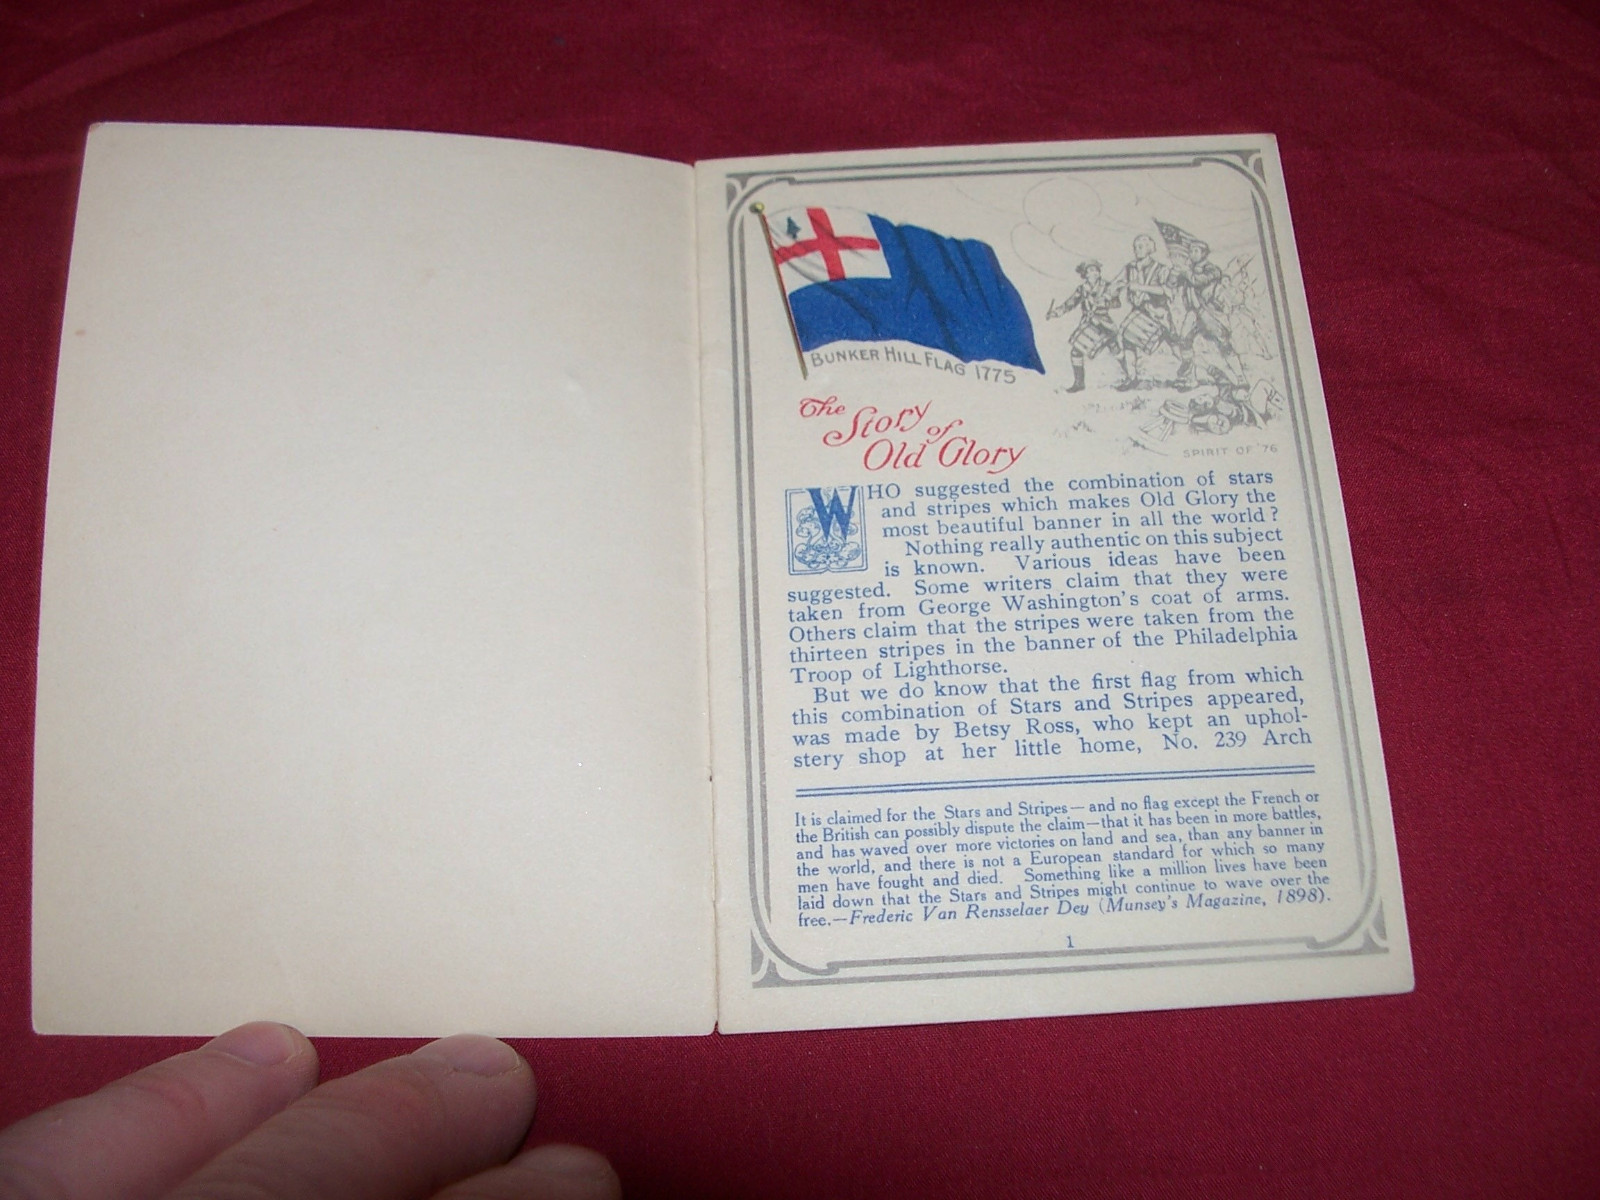 BUNKER HILL FLAG 1775
The
Story
of
Old Glory
SPIRIT OF '76
WHO suggested the combination of stars
and stripes which makes Old Glory the
most beautiful banner in all the world?
Nothing really authentic on this subject
is known. Various ideas have been
suggested. Some writers claim that they were
taken from George Washington's coat of arms.
Others claim that the stripes were taken from the
thirteen stripes in the banner of the Philadelphia
Troop of Lighthorse.
But we do know that the first flag from which
this combination of Stars and Stripes appeared,
was made by Betsy Ross, who kept an uphol-
stery shop at her little home, No. 239 Arch
It is claimed for the Stars and Stripes—and no flag except the French or
the British can possibly dispute the claim—that it has been in more battles,
and has waved over more victories on land and sea, than any banner in
the world, and there is not a European standard for which so many
men have fought and died. Something like a million lives have been
laid down that the Stars and Stripes might continue to wave over the
free.—Frederic Van Rensselaer Dey (Munsey's Magazine, 1898).
1